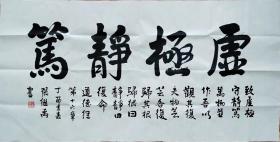 虛極靜篤
致虛極
守靜篤
萬物並
作吾以
觀其復
夫物芸
芸各復
歸其根
歸根曰
靜靜曰
復命
道德經
第十六章
丁酉
張繼禹
書